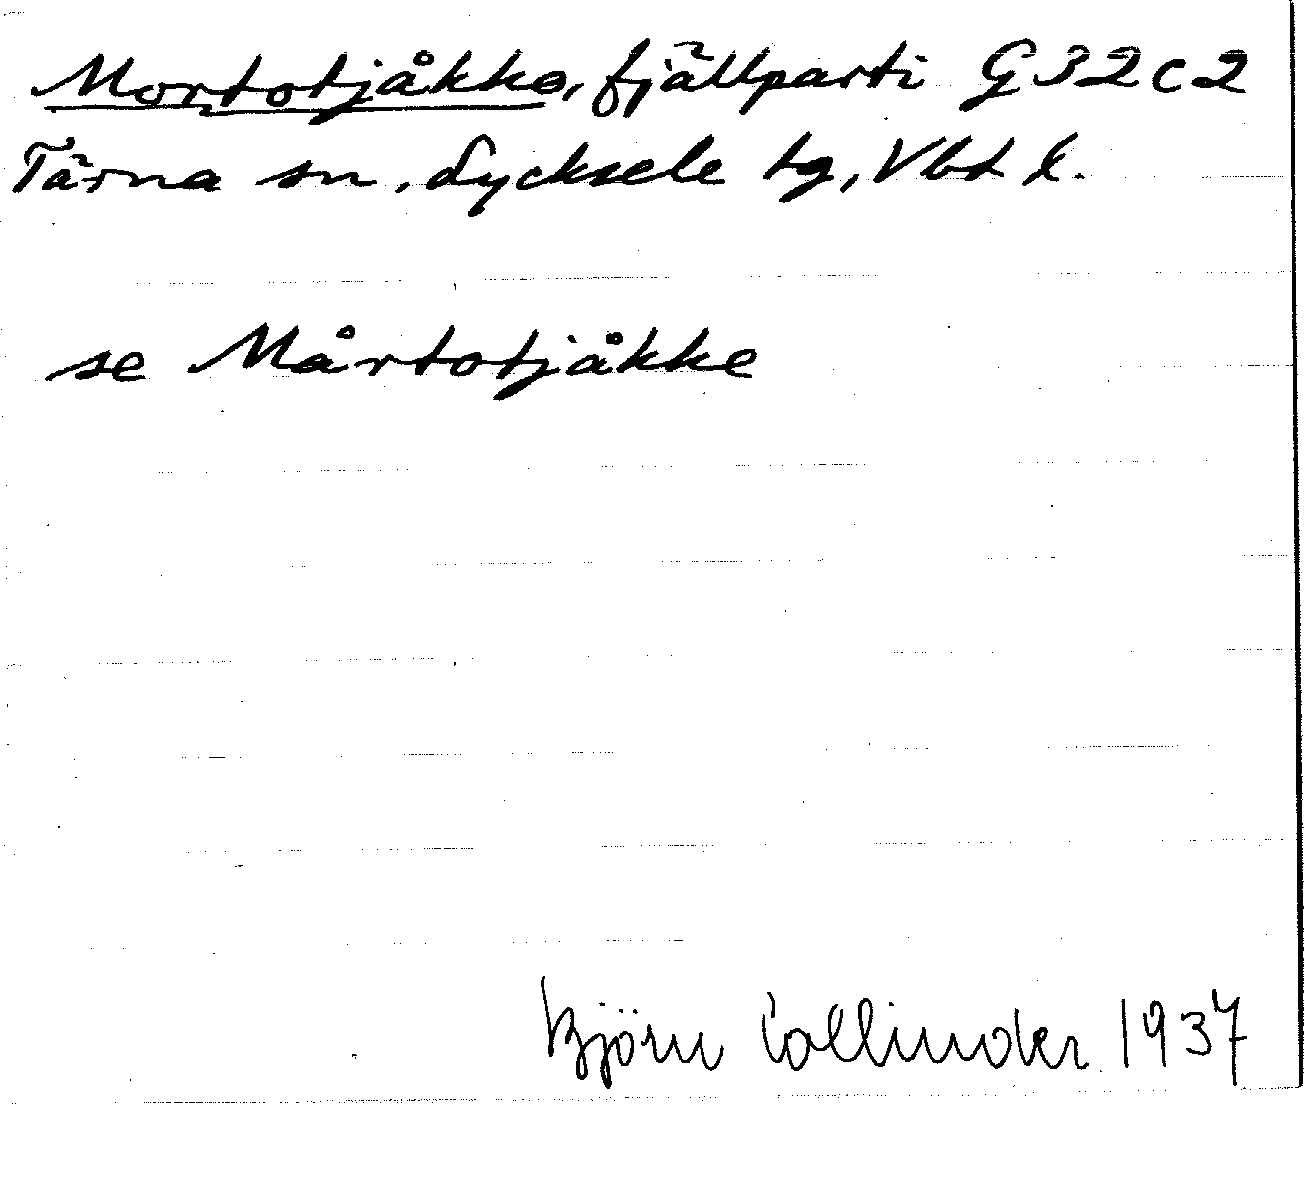 Mortotjåkke, fjällparti G32c2
Tärna sn, Lycksele lg, Vbt l.
se Mårtotjåkke
Björn Collinder 1937